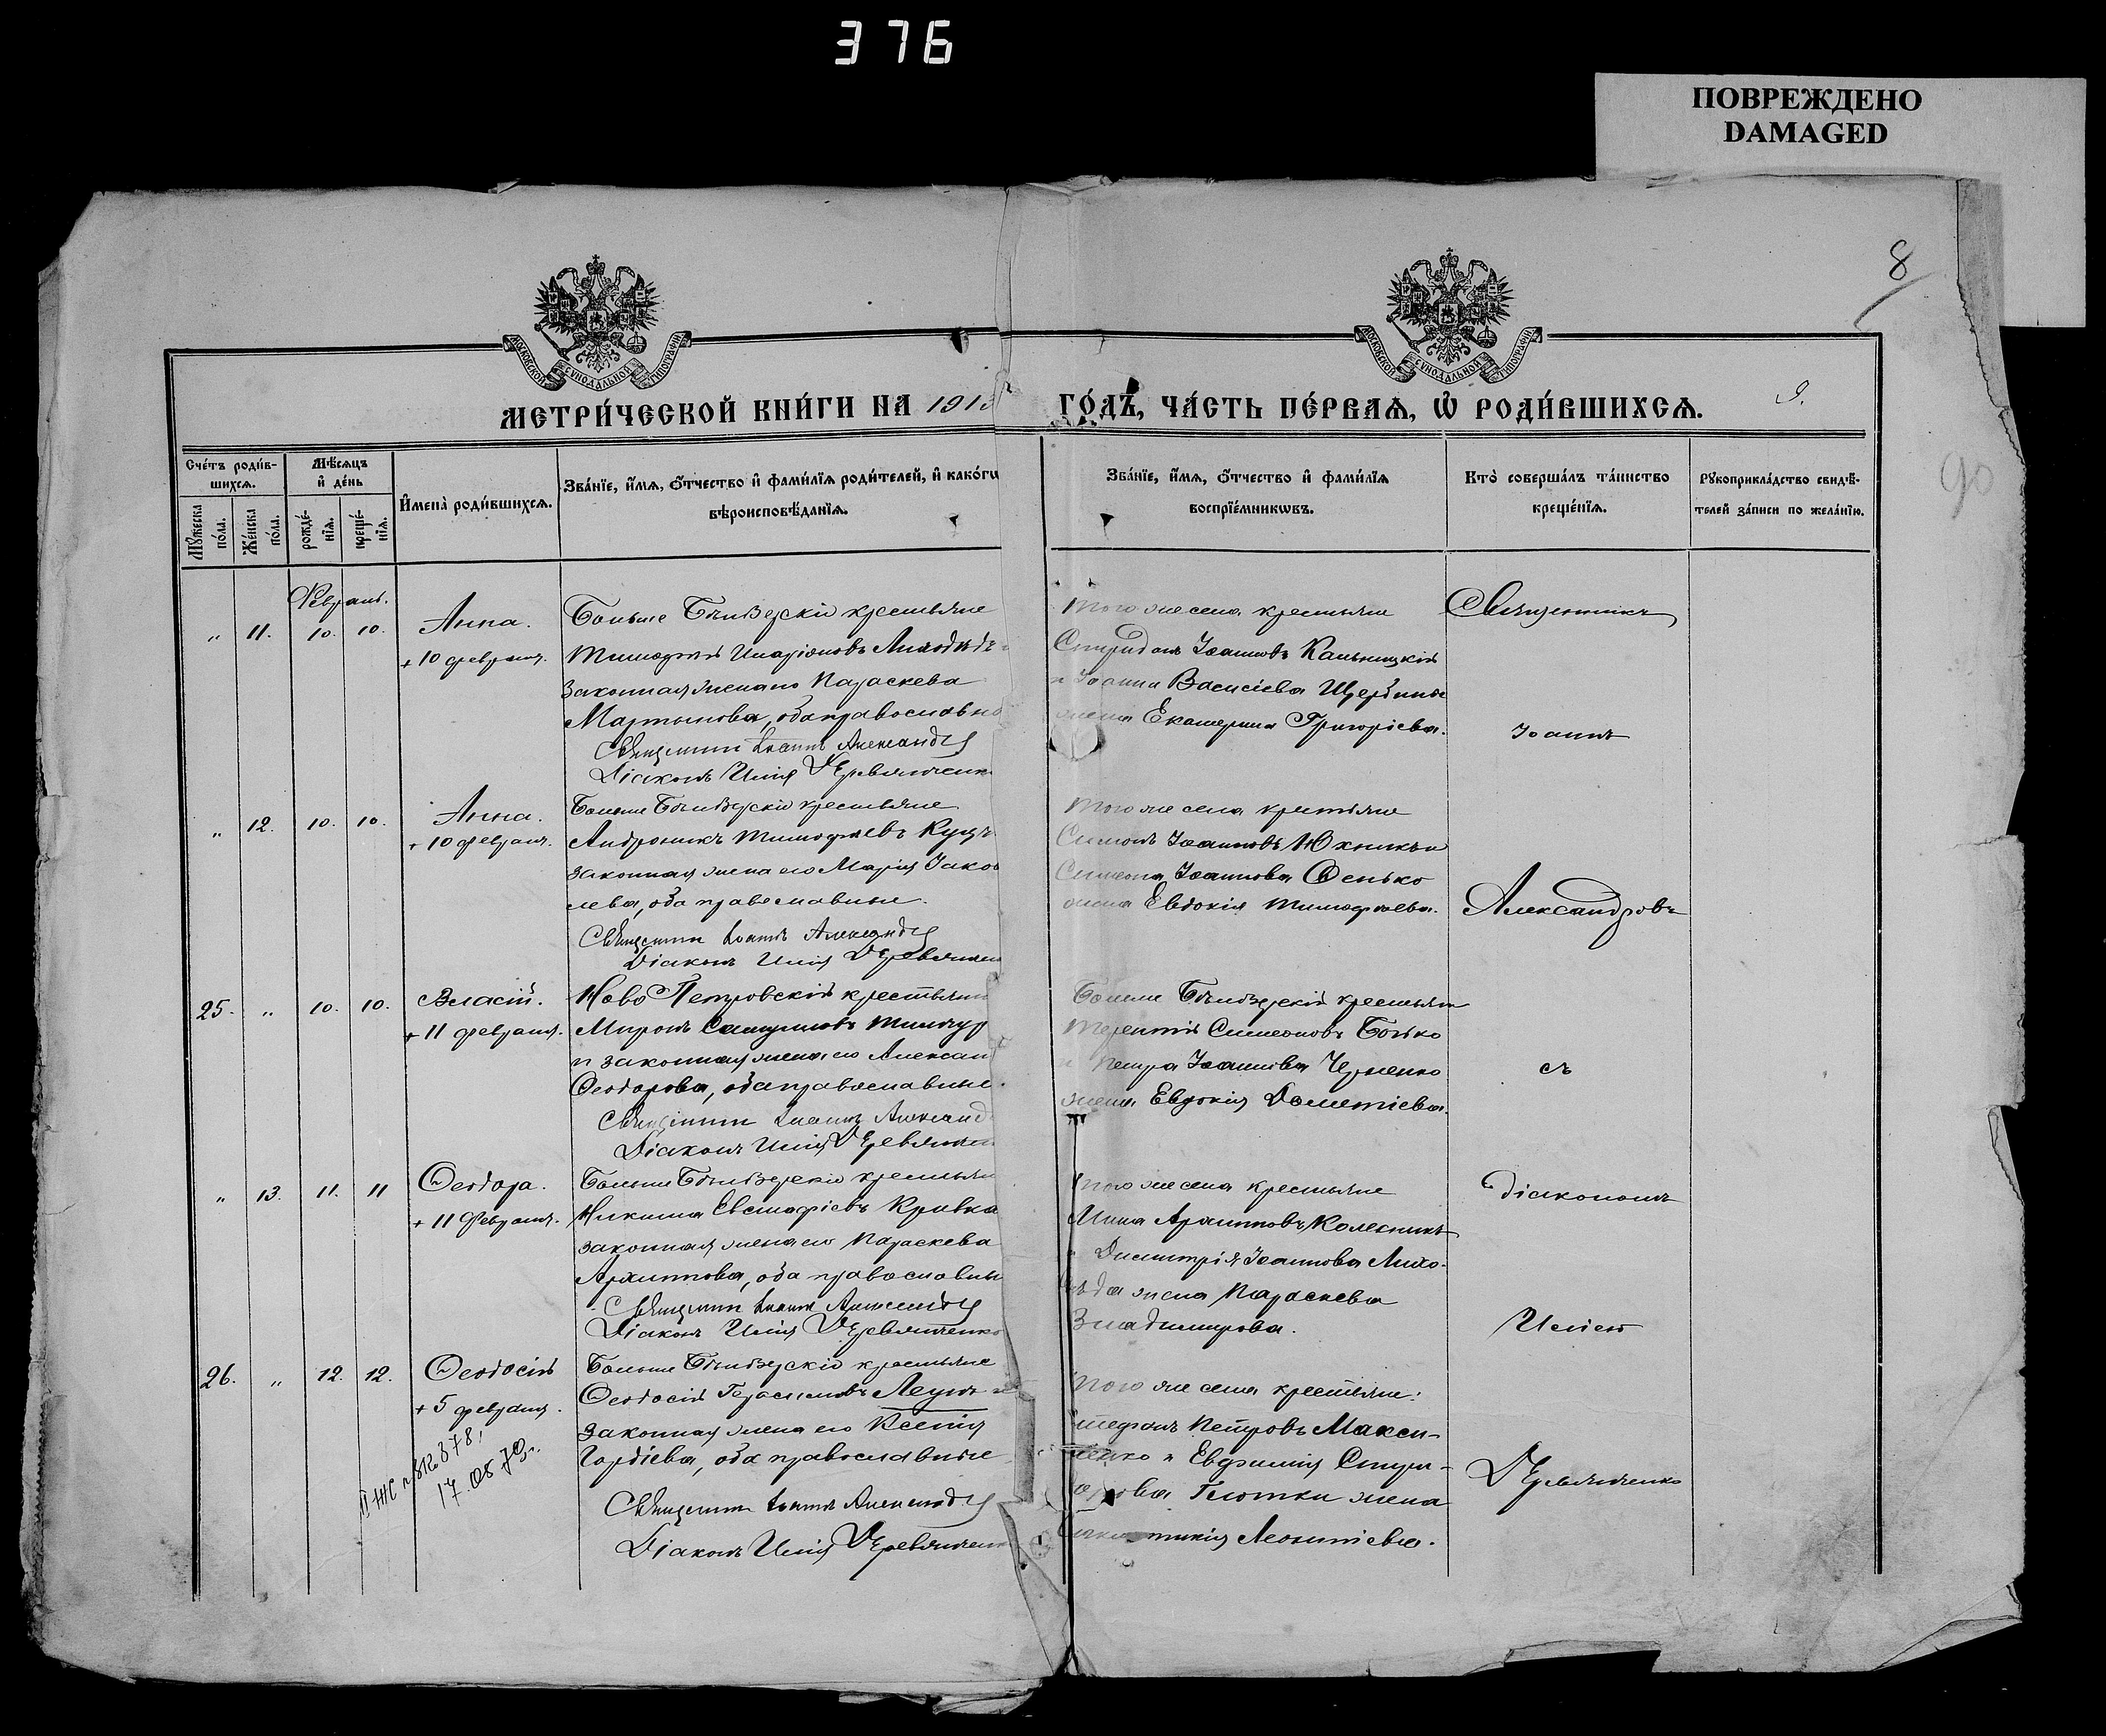 376
ПОВРЕЖДЕНО
DAMAGED
8
9.
90
МОСКОВСКОЙ СѴНОДАЛЬНОЙ ТИПОГРАФІИ
МОСКОВСКОЙ СѴНОДАЛЬНОЙ ТИПОГРАФІИ
МЕТРИ́ЧЕСКОЙ КНИ́ГИ НА 191
ГО́ДЪ, ЧА́СТЬ ПЕ́РВАѦ, Ѡ҆ РОДИ́ВШИХСѦ.
Сче́тъ роди́в-
шихсѧ.
Мѣ́сѧцъ
и҆ де́нь
Мꙋ́жеска по́ла.
Же́нска по́ла.
рожде́-
нїѧ.
креще́-
нїѧ.
И҆мена̀ роди́вшихсѧ.
Зва́нїе, и҆́мѧ, ѻ҆́тчество и҆ фами́лїѧ роди́телей, и҆ како́гѡ
вѣроисповѣ́данїѧ.
Зва́нїе, и҆́мѧ, ѻ҆́тчество и҆ фами́лїѧ
воспрїе́мникѡвъ.
Кто̀ соверша́лъ та́инство
креще́нїѧ.
Рꙋкоприкла́дство свидѣ́-
телей за́писи по жела́нїю.
Февраль.
„ 11. 10. 10.
Анна.
+ 10 февраля.
Больше Бѣлозерскіе крестьяне
Тимофей Иларіоновъ
законная жена его Параскева
Мартынова, оба православн
Священникъ Іоаннъ Александр
Діаконъ Илія Деревянченк
Того же села крестьяне
Спиридонъ Іоанновъ Кальницкій
и Іоанна Василіева Щербины
жена Екатерина Григоріева.
Священникъ
Іоаннъ
„ 12. 10. 10.
Анна.
+ 10 февраля.
Больше Бѣлозерскіе крестьяне
Андроникъ Тимофеевъ
законная жена его Марія Іаков
лева, оба православные.
Священникъ Іоаннъ Александр
Діаконъ Илія Деревянчен
Того же села крестьяне
Симонъ Іоанновъ Юхникъ и
Симеона Іоаннова Сенько
жена Евдокія Тимофеева.
Александровъ
25. „ 10. 10.
Власій.
+ 11 февраля.
Ново Петровскій крестьянин
Миронъ
и законная жена его Алексан
Ѳеодорова, оба православные.
Священникъ Іоаннъ Александ
Діаконъ Илія Деревянчен
Больше Бѣлозерскій крестьянин
Терентій Симеоновъ Бойко
и Петра Іоаннова Черненко
жена Евдокія Дометіева.
съ
„ 13. 11. 11
Ѳеодора.
+ 11 Февраля.
Больше Бѣлозерскіе крестьян
Никита Евстафіевъ Кривка
законная жена его Параскева
Архиппова, оба православны
Священникъ Іоаннъ Александр
Діаконъ Илія Деревянченко
Того же села крестьяне
Мина Архипповъ Колесникъ
и Димитрія Іоаннова Лихо-
ѣда жена Параскева
Владимирова.
діакономъ
Иліею
26. „ 12. 12.
Ѳеодосій
+ 5 февраля.
Больше Бѣлозерскіе крестьяне
Ѳеодосій Герасимовъ
законная жена его Ксенія
Гордіева, оба православные
Священникъ Іоаннъ Александр
Діаконъ Илія Деревянченк
Того же села крестьяне:
Стефанъ Петровъ Макси-
менко и Евфимія Спири-
жена
Леонтіева.
Деревянченко
17.08.79г.